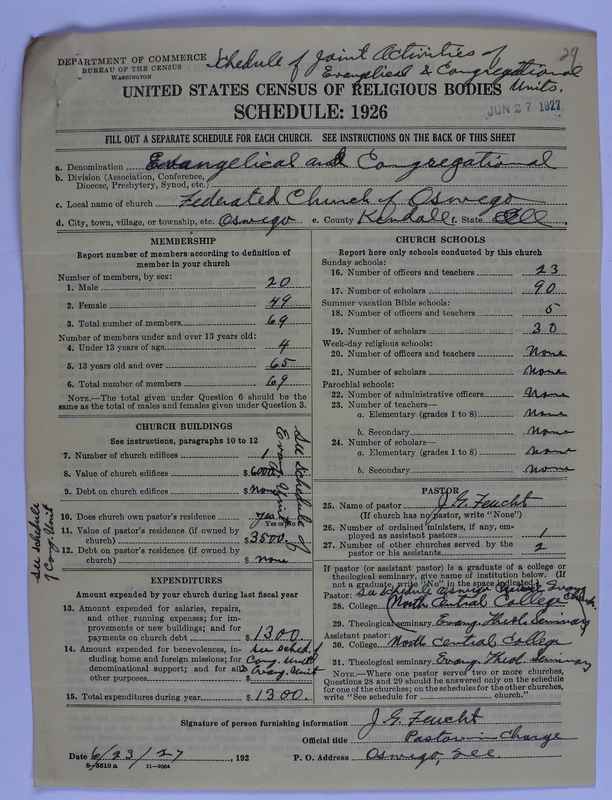 29
DEPARTMENT OF COMMERCE
BUREAU OF THE CENSUS
WASHINGTON
Schedule of Joint Activities of
Evangelical & Congregational
Units.
UNITED STATES CENSUS OF RELIGIOUS BODIES
SCHEDULE: 1926
JUN 27 1927
FILL OUT A SEPARATE SCHEDULE FOR EACH CHURCH. SEE INSTRUCTIONS ON THE BACK OF THIS SHEET
a. Denomination Evangelical and Congregational
b. Division (Association, Conference, Diocese, Presbytery, Synod, etc.)
c. Local name of church Federated Church of Oswego
d. City, town, village, or township, etc. Oswego e. County Kendall f. State Ill
MEMBERSHIP
Report number of members according to definition of
member in your church
Number of members, by sex:
1. Male 20
2. Female 49
3. Total number of members 69
Number of members under and over 13 years old:
4. Under 13 years of age 4
5. 13 years old and over 65
6. Total number of members 69
NOTE.—The total given under Question 6 should be the
same as the total of males and females given under Question 3.
CHURCH BUILDINGS
See instructions, paragraphs 10 to 12
7. Number of church edifices 1
8. Value of church edifices $6000
9. Debt on church edifices $None
10. Does church own pastor's residence yes
Yes or
11. Value of pastor's residence (if owned by
church) $3500.
12. Debt on pastor's residence (if owned by
church) $none
See Schedule of
Evang. Unit
See Schedule
of Cong. Unit
EXPENDITURES
Amount expended by your church during last fiscal year
13. Amount expended for salaries, repairs,
and other running expenses; for im-
provements or new buildings; and for
payments on church debt $1300.
14. Amount expended for benevolences, in-
cluding home and foreign missions; for
denominational support; and for all
other purposes $
See Sched. of
Cong. Unit
Evang. Unit
15. Total expenditures during year $1300.
CHURCH SCHOOLS
Report here only schools conducted by this church
Sunday schools:
16. Number of officers and teachers 23
17. Number of scholars 90
Summer vacation Bible schools:
18. Number of officers and teachers 5
19. Number of scholars 30
Week-day religious schools:
20. Number of officers and teachers None
21. Number of scholars None
Parochial schools:
22. Number of administrative officers None
23. Number of teachers—
a. Elementary (grades 1 to 8) None
b. Secondary None
24. Number of scholars—
a. Elementary (grades 1 to 8) None
b. Secondary None
PASTOR
25. Name of pastor J. G. Feucht
(If church has no pastor, write "None")
26. Number of ordained ministers, if any, em-
ployed as assistant pastors 1
27. Number of other churches served by the
pastor or his assistants 2
If pastor (or assistant pastor) is a graduate of a college or
theological seminary, give name of institution below. (If
not a graduate, write "No" in the space indicated.)
Pastor: See schedule Oswego
28. College North Central College
29. Theological seminary Evang. Theol. Seminary
Assistant pastor:
30. College North Central College
31. Theological seminary Evang. Theol. Seminary
NOTE.—Where one pastor serves two or more churches,
Questions 28 and 29 should be answered only on the schedule
for one of the churches; on the schedules for the other churches,
write "See schedule for church."
Signature of person furnishing information J. G. Feucht
Official title Pastor in Charge
Date 6/23/27, 192 P. O. Address Oswego, Ill.
8-5518a 11-9064